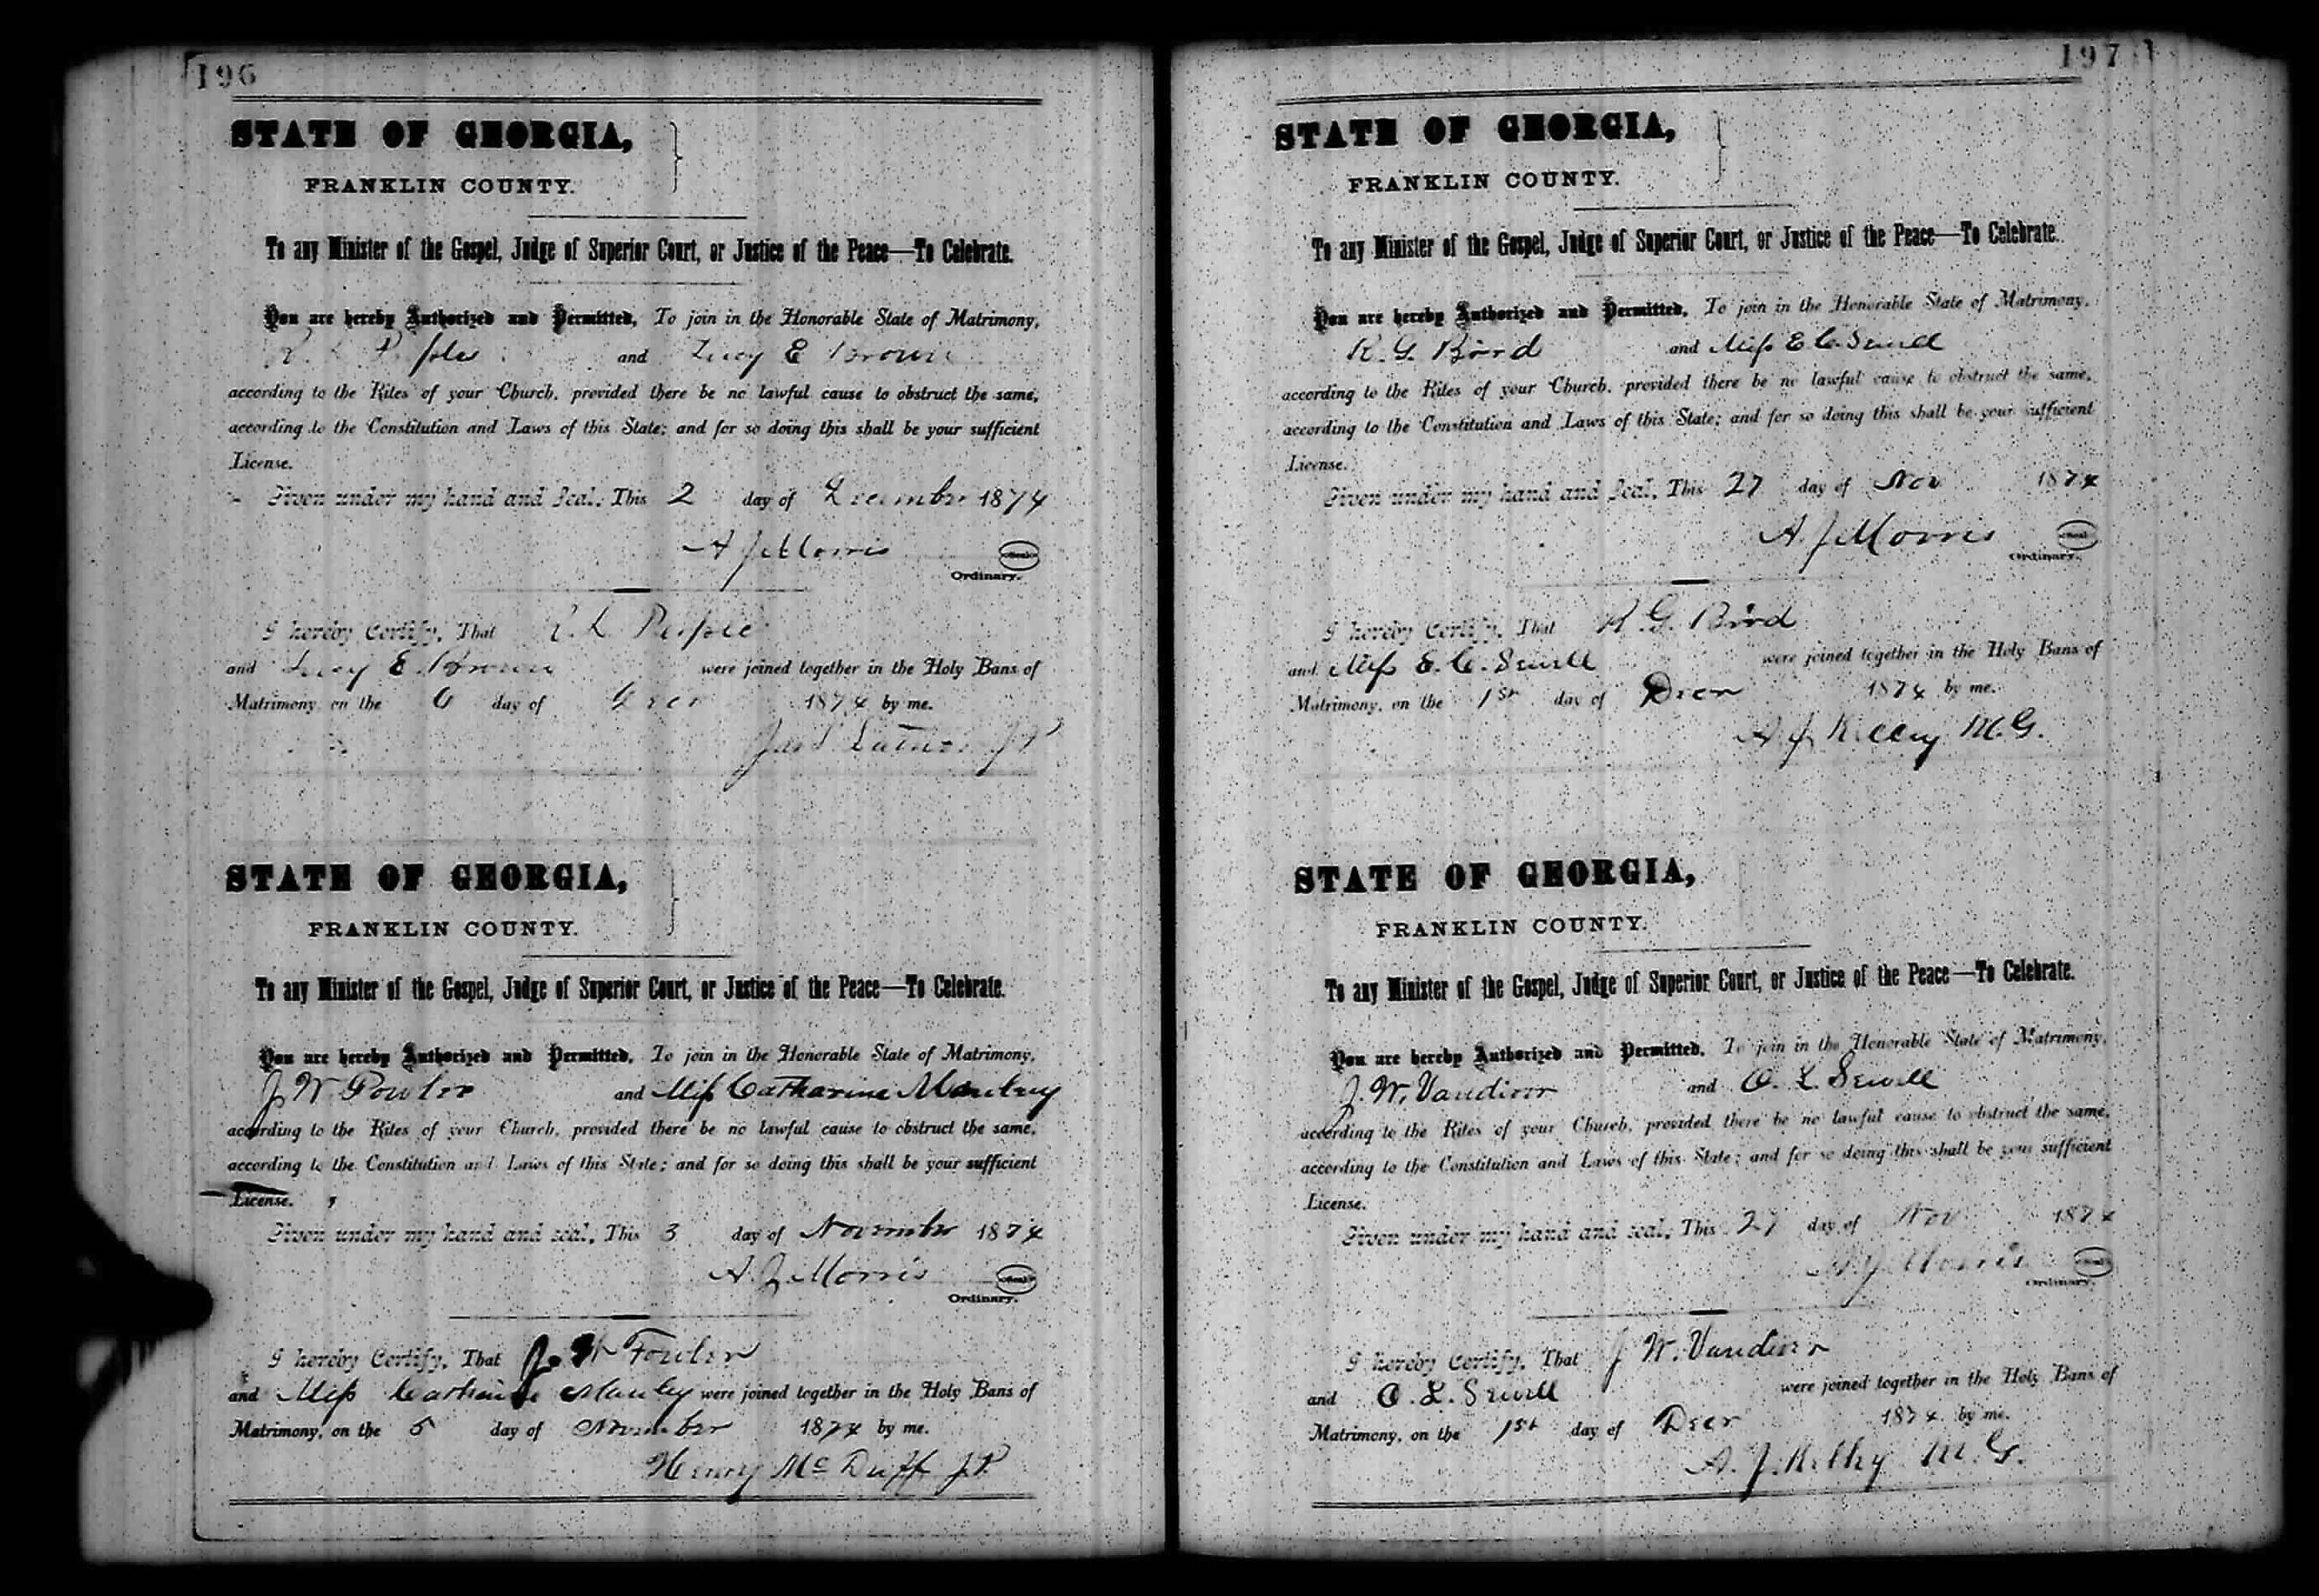 196
STATE OF GEORGIA,
FRANKLIN COUNTY.
To any Minister of the Gospel, Judge of Superior Court, or Justice of the Peace—To Celebrate.
You are hereby Authorized and Permitted, To join in the Honorable State of Matrimony,
and Lucy E Brown
according to the Rites of your Church, provided there be no lawful cause to obstruct the same,
according to the Constitution and Laws of this State; and for so doing this shall be your sufficient
License.
Given under my hand and Seal, This 2 day of December 1874
A J Morris
Ordinary.
I hereby Certify, That
and Lucy E. Brown were joined together in the Holy Bans of
Matrimony, on the 6 day of Decr 1874 by me.
JP
STATE OF GEORGIA,
FRANKLIN COUNTY.
To any Minister of the Gospel, Judge of Superior Court, or Justice of the Peace—To Celebrate.
You are hereby Authorized and Permitted, To join in the Honorable State of Matrimony,
J W Fowler and Miss Catharine Manley
according to the Rites of your Church, provided there be no lawful cause to obstruct the same,
according to the Constitution and Laws of this State; and for so doing this shall be your sufficient
License.
Given under my hand and seal, This 3 day of November 1874
A. J. Morris
Ordinary.
I hereby Certify, That J. W Fowler
and Miss Catharine Manley were joined together in the Holy Bans of
Matrimony, on the 5 day of November 1874 by me.
Henry Mc Duff J.P.
197
STATE OF GEORGIA,
FRANKLIN COUNTY.
To any Minister of the Gospel, Judge of Superior Court, or Justice of the Peace—To Celebrate.
You are hereby Authorized and Permitted, To join in the Honorable State of Matrimony,
R. G. Bird and Miss E. C. Sewell
according to the Rites of your Church, provided there be no lawful cause to obstruct the same,
according to the Constitution and Laws of this State; and for so doing this shall be your sufficient
License.
Given under my hand and Seal, This 27 day of Nov 1874
A. J Morris
Ordinary.
I hereby Certify, That R. G. Bird
and Miss E. C. Sewell were joined together in the Holy Bans of
Matrimony, on the 1st day of Decr 1874 by me.
A J Kelley M.G.
STATE OF GEORGIA,
FRANKLIN COUNTY.
To any Minister of the Gospel, Judge of Superior Court, or Justice of the Peace—To Celebrate.
You are hereby Authorized and Permitted, To join in the Honorable State of Matrimony,
J. W. Vandiver and O. L. Sewell
according to the Rites of your Church, provided there be no lawful cause to obstruct the same,
according to the Constitution and Laws of this State; and for so doing this shall be your sufficient
License.
Given under my hand and seal, This 27 day of Nov 1874
A. J. Morris
Ordinary.
I hereby Certify, That J W. Vandiver
and O. L. Sewell were joined together in the Holy Bans of
Matrimony, on the 1st day of Decr 1874 by me.
A. J. Kelley M. G.